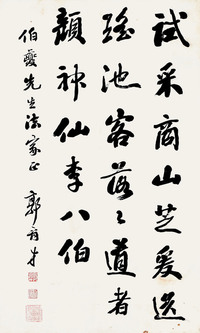 試采商山芝爰送
瑤池客落〻道者
顏神仙李八伯
伯夔先生法家正
郭